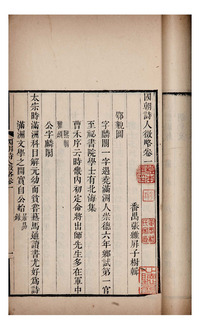 國朝詩人徵略卷一
番禺張維屏子樹輯
鄂貌圖
字麟閣一
滿洲人崇德六年鄉試第一官
至祕書院學士有北海集
曹禾序云時海內初定命將出師先生多在軍中
公字麟閣
太宗時滿洲科目解元幼而貧苦爇馬通讀書尤好爲詩
滿洲文學之開實自公始